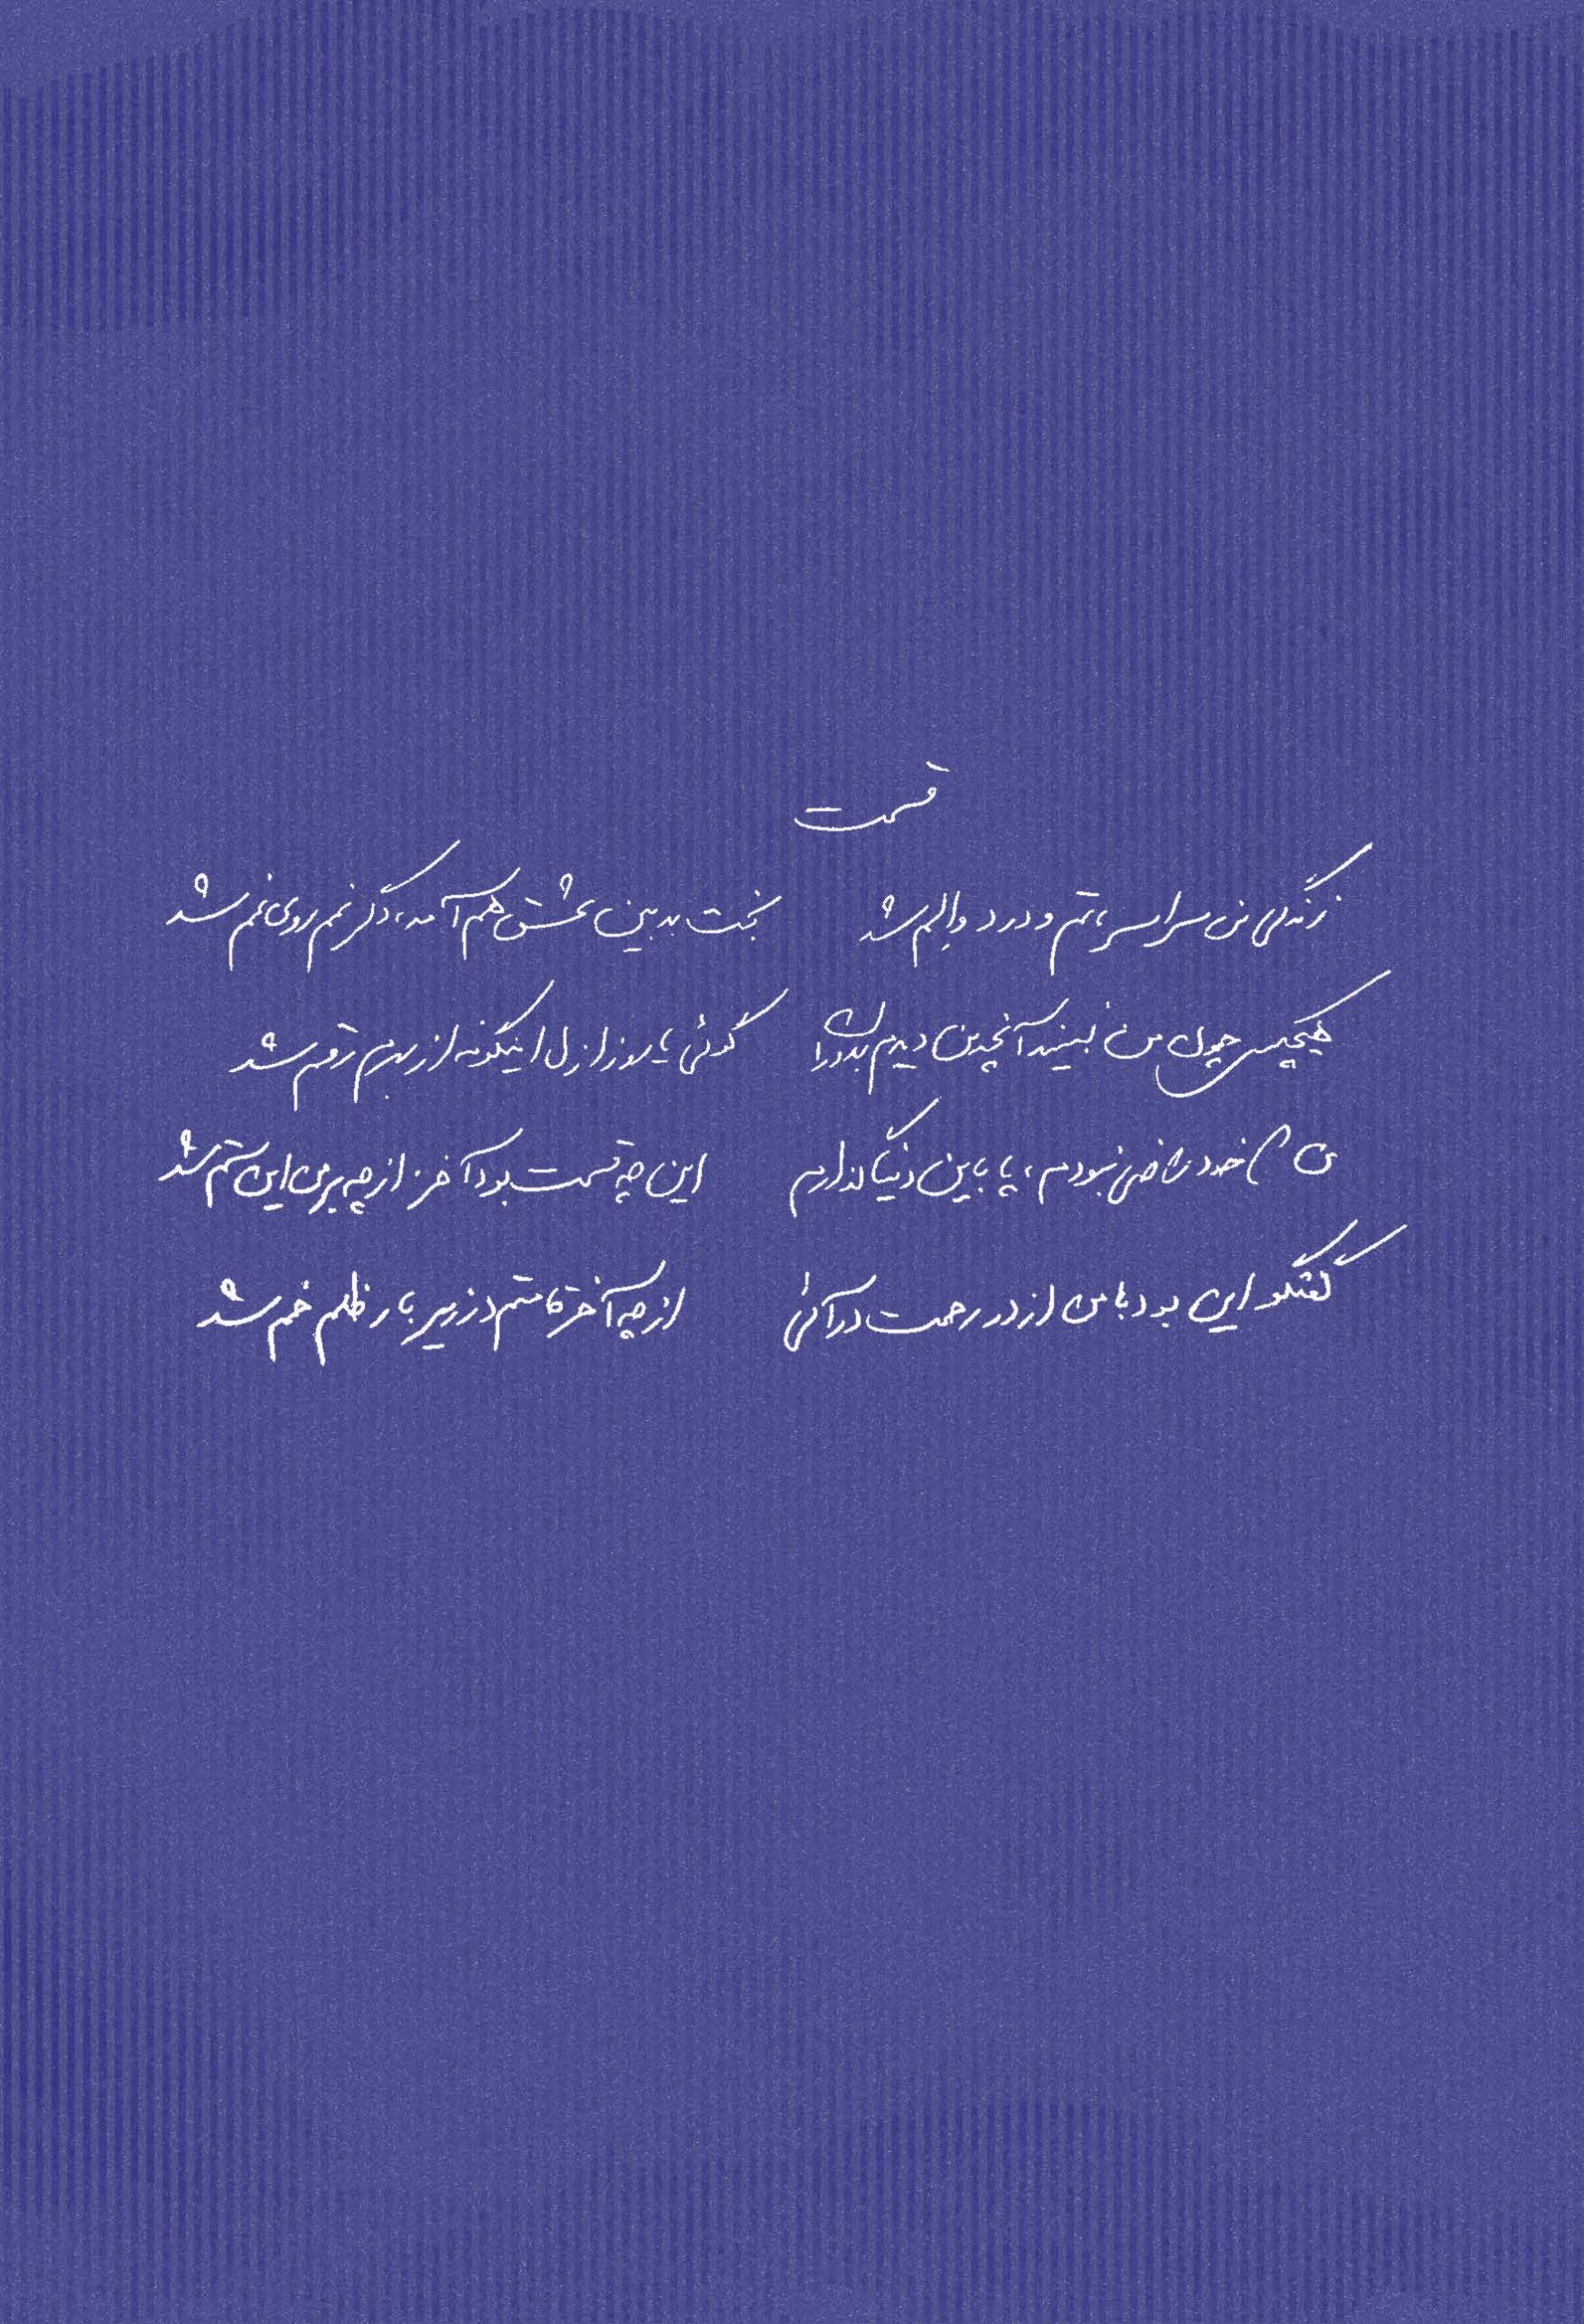 قسمت
زندگی من سراسر ماتم و درد و الم شد بخت بد بین عشق هم آمد، دگر غم روی غم شد
هیچکس چون من نبیند آنچه من دیدم بدوران گوئی تا روز ازل اینگونه از بهرم رقم شد
من خود راضی نبودم، پا باین دنیا گذارم این چه قسمت بود آخر از چه بر من این ستم شد
گفتگو این بود با من از در رحمت درآئی از چه آخر قامتم در زیر بار ظلم خم شد